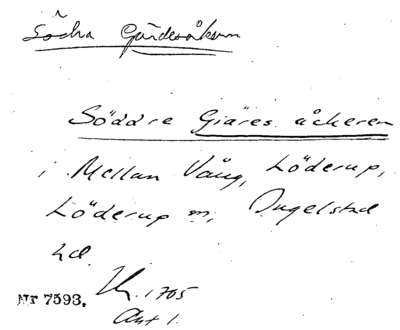 Södra Gärdesåkern
Söddre Giäres åckeren
i Mellan Vång, Löderup,
Löderup sn, Ingelstad
hd.
Nr 7593. Kr. 1705
Akt 1.